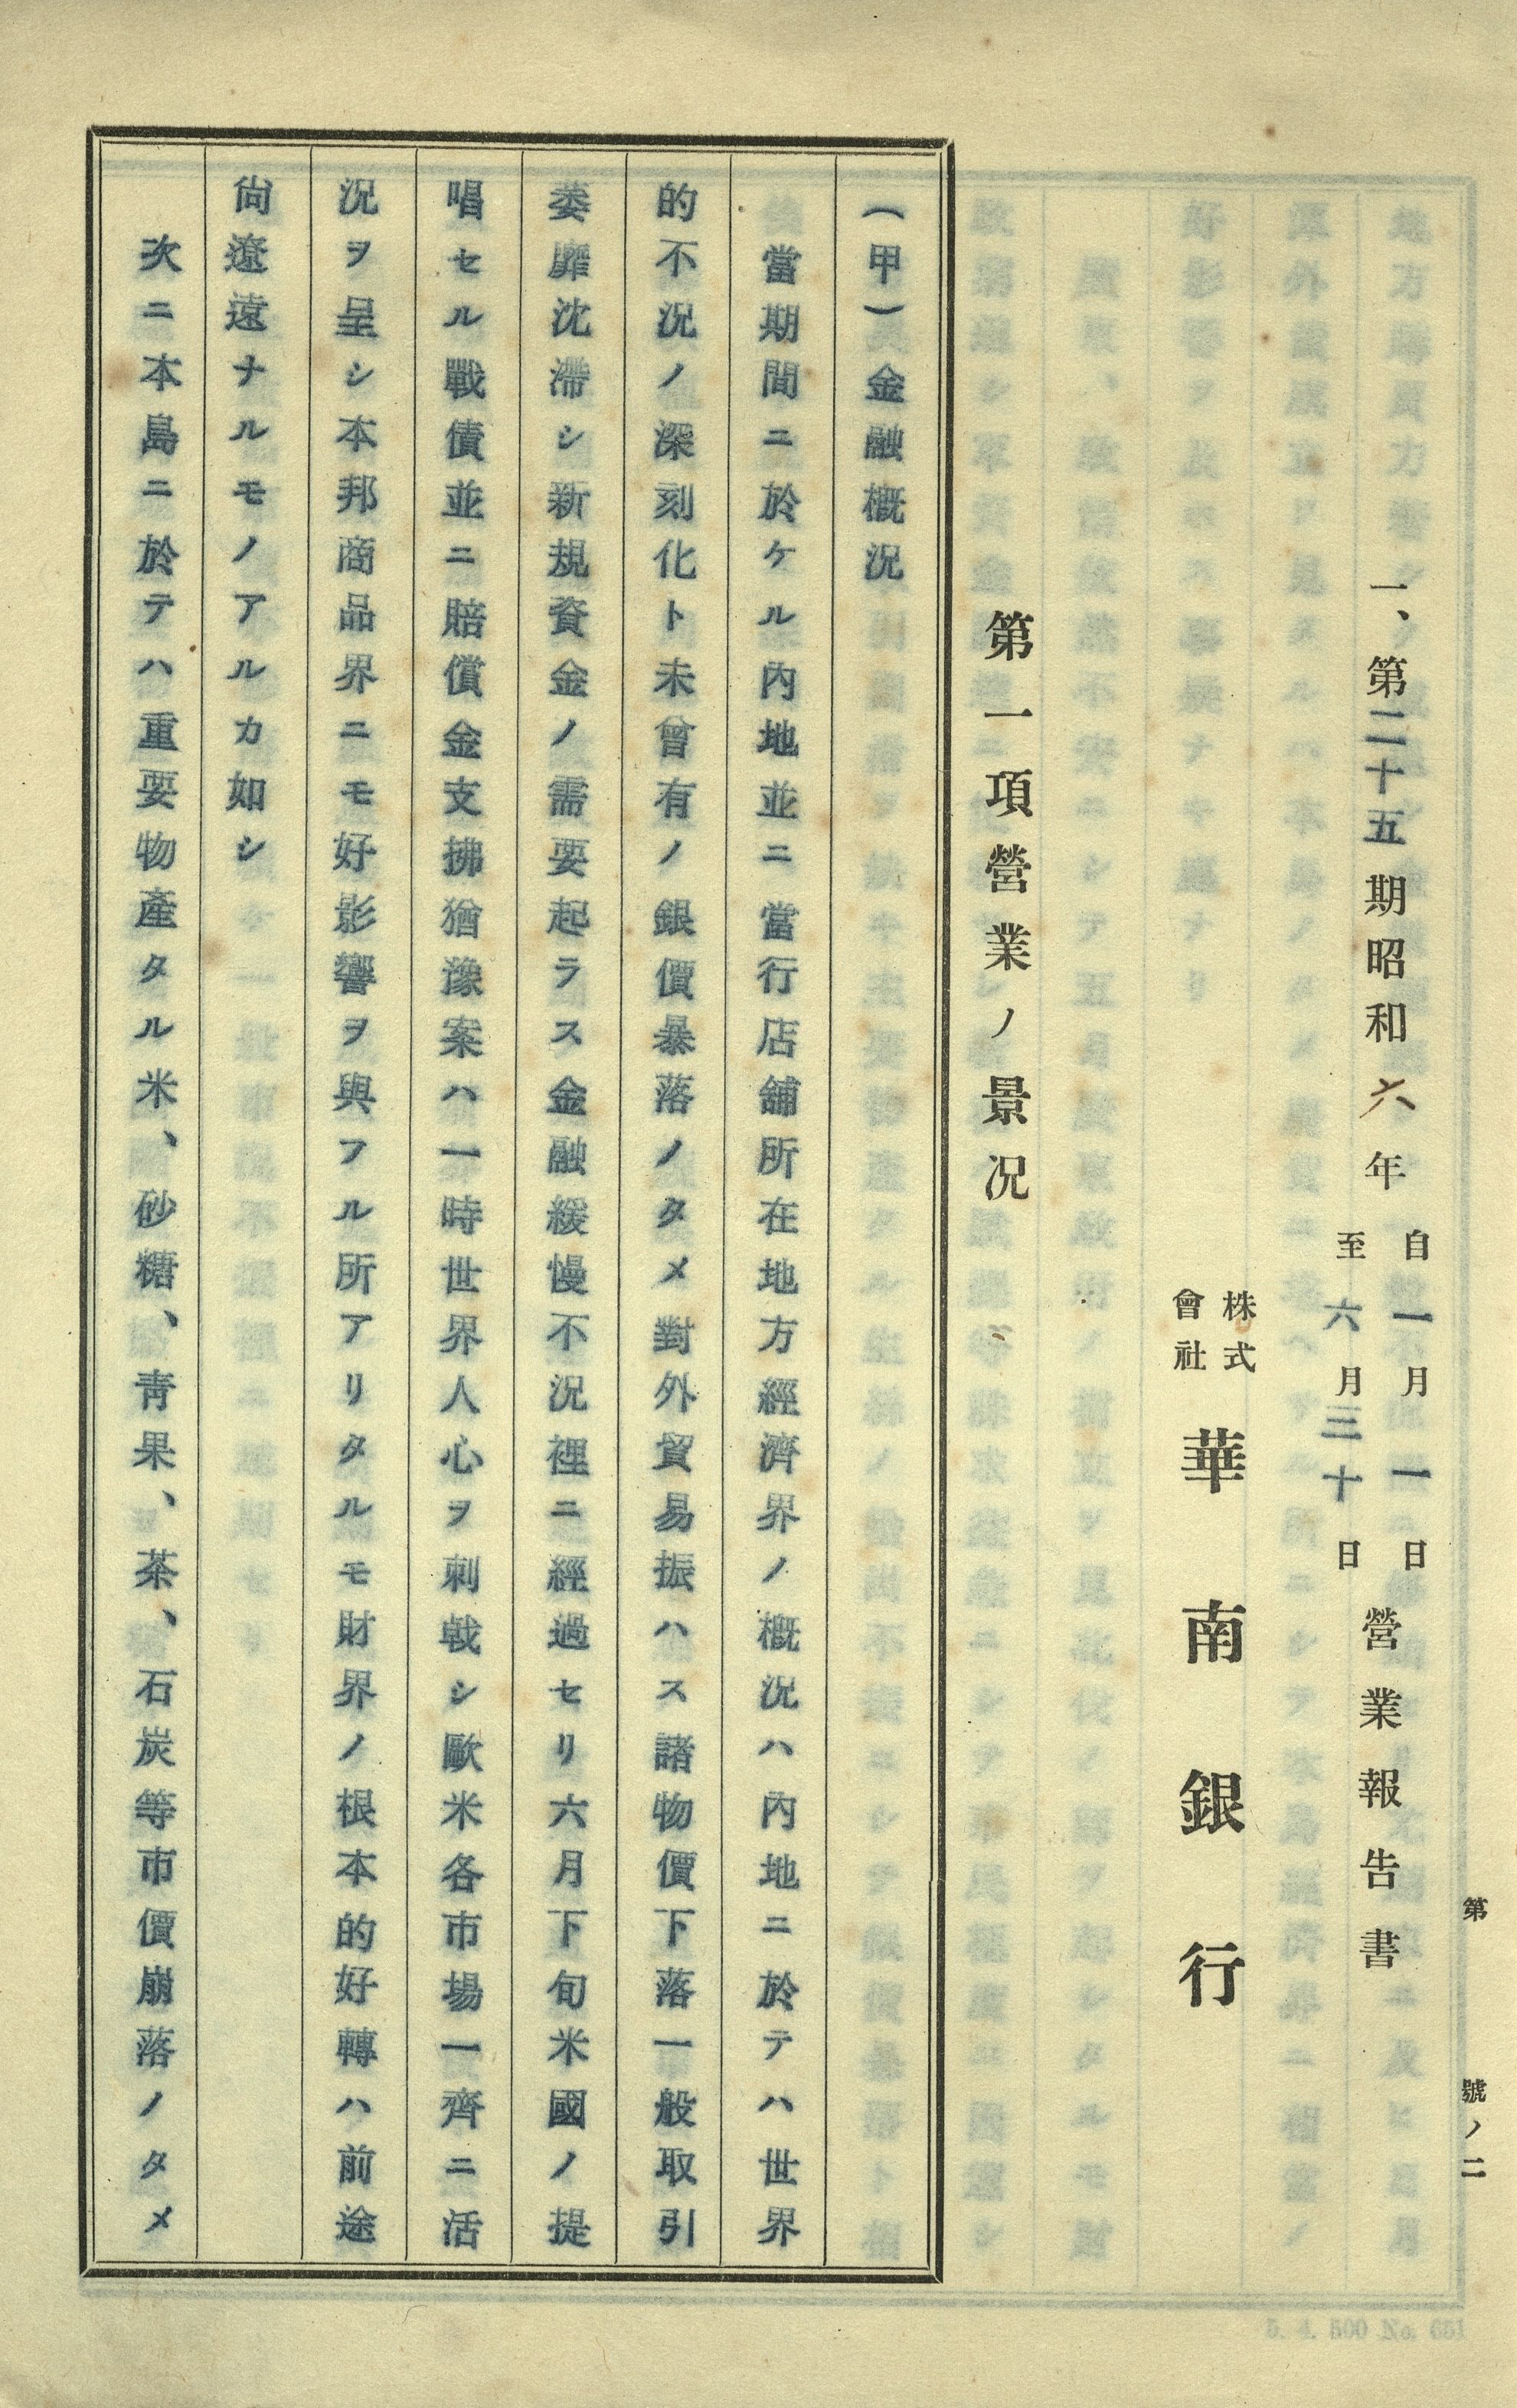 第　　號ノ二
一、第二十五期昭和六年自一月一日至六月三十日營業報告書
株式會社華南銀行
第一項營業ノ景況
（甲）金融概況
當期間ニ於ケル內地並ニ當行店舖所在地方經濟界ノ概況ハ內地ニ於テハ世界
的不況ノ深刻化ト未曾有ノ銀價暴落ノタメ對外貿易振ハス諸物價下落一般取引
萎靡沈滯シ新規資金ノ需要起ラス金融緩慢不況裡ニ經過セリ六月下旬米國ノ提
唱セル戰債並ニ賠償金支拂猶豫案ハ一時世界人心ヲ刺戟シ歐米各市場一齊ニ活
況ヲ呈シ本邦商品界ニモ好影響ヲ與フル所アリタルモ財界ノ根本的好轉ハ前途
尙遼遠ナルモノアルカ如シ
次ニ本島ニ於テハ重要物產タル米、砂糖、靑果、茶、石炭等市價崩落ノタメ